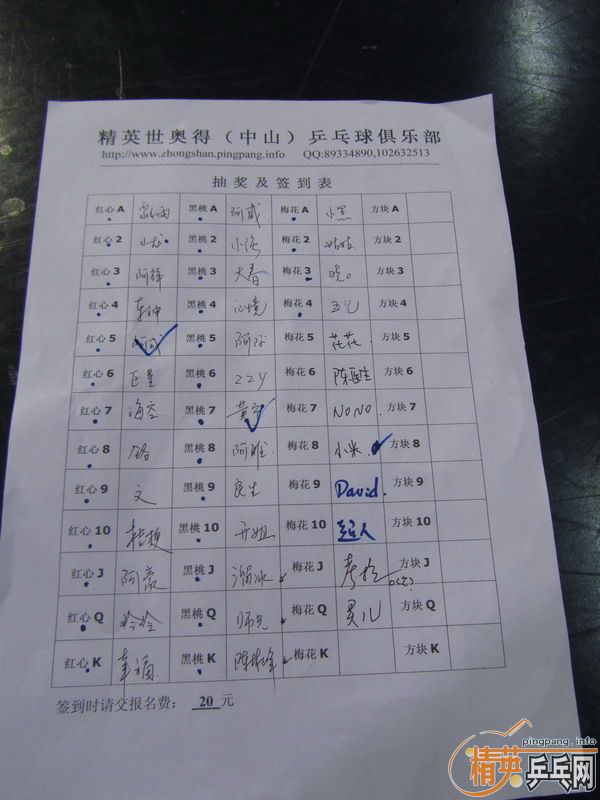 精英世奥得（中山）乒乓球俱乐部
http://www.zhongshan.pingpang.info QQ:89334890,102632513
抽奖及签到表
红心A 黑桃A 阿威 梅花A 小黑 方块A
红心2 小龙 黑桃2 梅花2 姑娘 方块2
红心3 阿锋 黑桃3 大春 梅花3 方块3
红心4 黑桃4 心境 梅花4 方块4
红心5 黑桃5 梅花5 花花 方块5
红心6 巨星 黑桃6 ZZY 梅花6 陈医生 方块6
红心7 海空 黑桃7 梅花7 NONO 方块7
红心8 黑桃8 阿雄 梅花8 小米 方块8
红心9 文 黑桃9 良生 梅花9 David. 方块9
红心10 桔梗 黑桃10 开姐 梅花10 超人 方块10
红心J 阿豪 黑桃J 溜冰 梅花J 方块J
红心Q 玲玲 黑桃Q 师兄 梅花Q 灵儿 方块Q
红心K 幸福 黑桃K 梅花K 方块K
签到时请交报名费： 20 元
pingpang.info
精英乒乓网